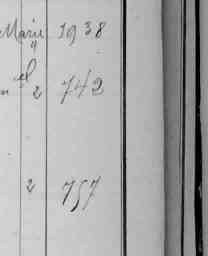 Marie 1938
"
el
n 2 742
2 757